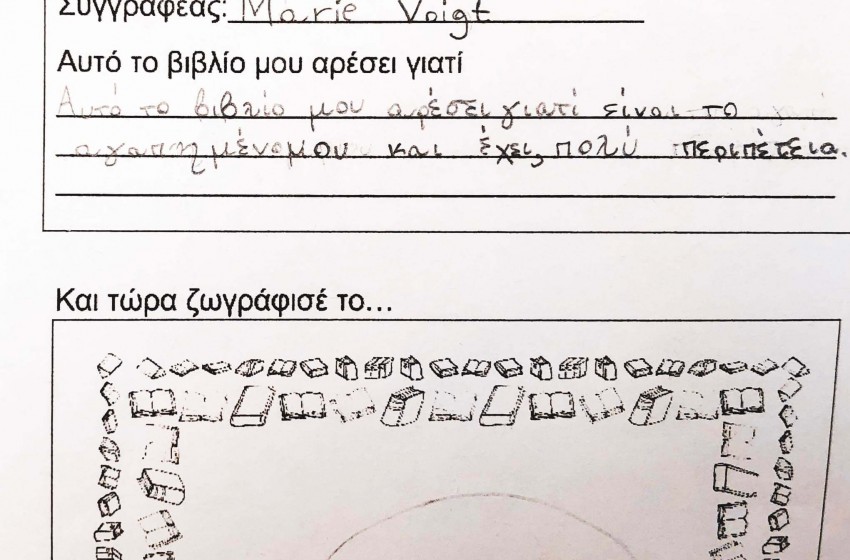 Συγγραφέας: Marie Voigt
Αυτό το βιβλίο μου αρέσει γιατί
Αυτό το βιβλίο μου αρέσει γιατί είναι το
αγαπημένο μου και έχει, πολύ περιπέτεια.
Και τώρα ζωγράφισέ το...